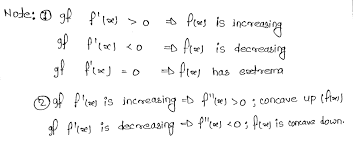 Note: ① If f'(x) > 0 ⇒ f(x) is increasing
If f'(x) < 0 ⇒ f(x) is decreasing
If f'(x) = 0 ⇒ f(x) has extrema
② If f'(x) is increasing ⇒ f''(x) > 0 ; concave up (f(x))
If f'(x) is decreasing ⇒ f''(x) < 0 ; f(x) is concave down.